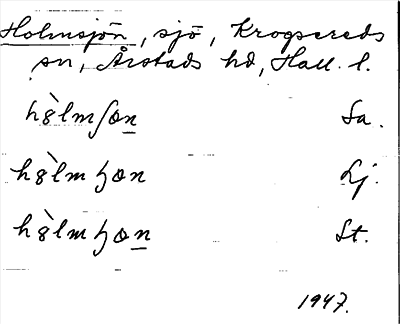 Holmsjön, sjö, Krogsereds
sn, Årstads hd, Hall. l.
hòlmʃɷn Sa.
hòlmɧɷn Lj.
hòlmɧɷn St.
1947.